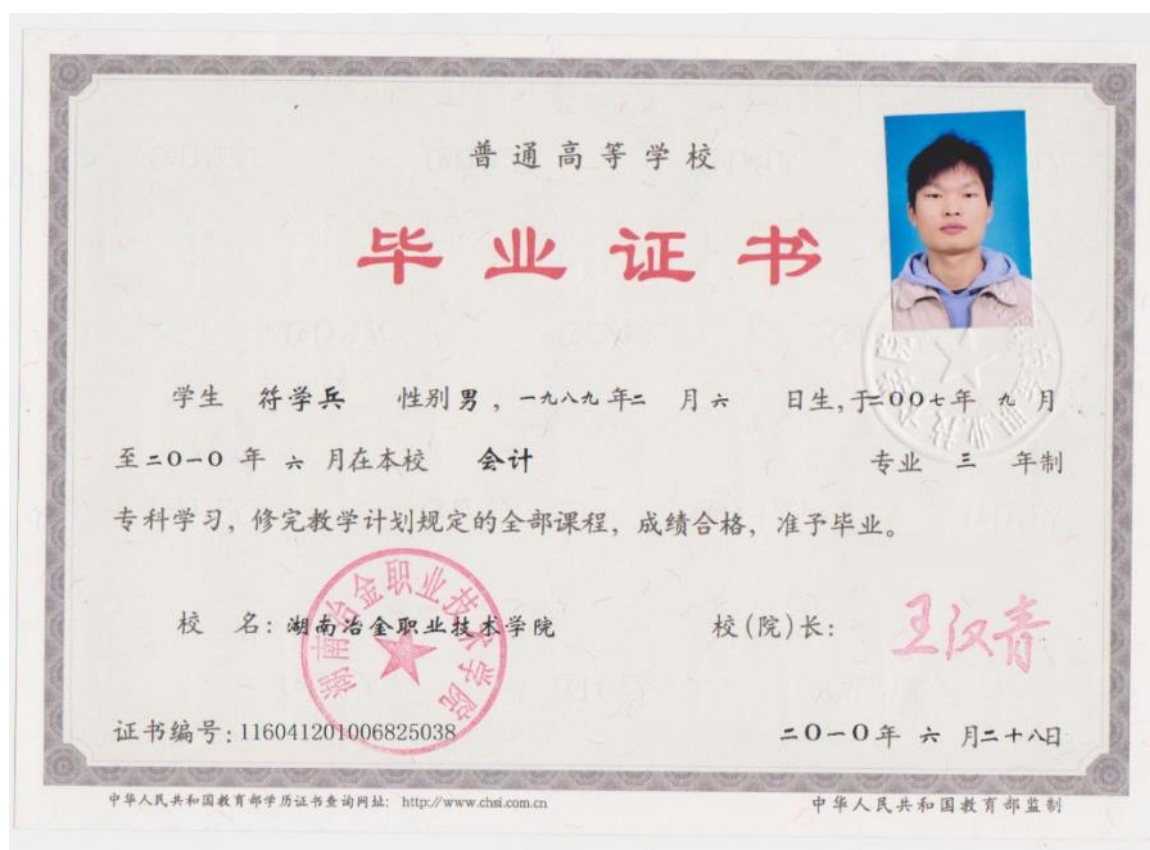 普通高等学校
毕业证书
学生 符学兵 性别 男 , 一九八九 年 二 月 六 日生, 于二00七年 九 月
至二0一0 年 六 月在本校 会计 专业 三 年制
专科学习, 修完教学计划规定的全部课程, 成绩合格, 准予毕业。
校 名: 湖南冶金职业技术学院 校(院)长: 王汉青
湖南冶金职业技术学院
证书编号: 116041201006825038 二0一0年 六 月二十八日
中华人民共和国教育部学历证书查询网址: http://www.chsi.com.cn 中华人民共和国教育部监制